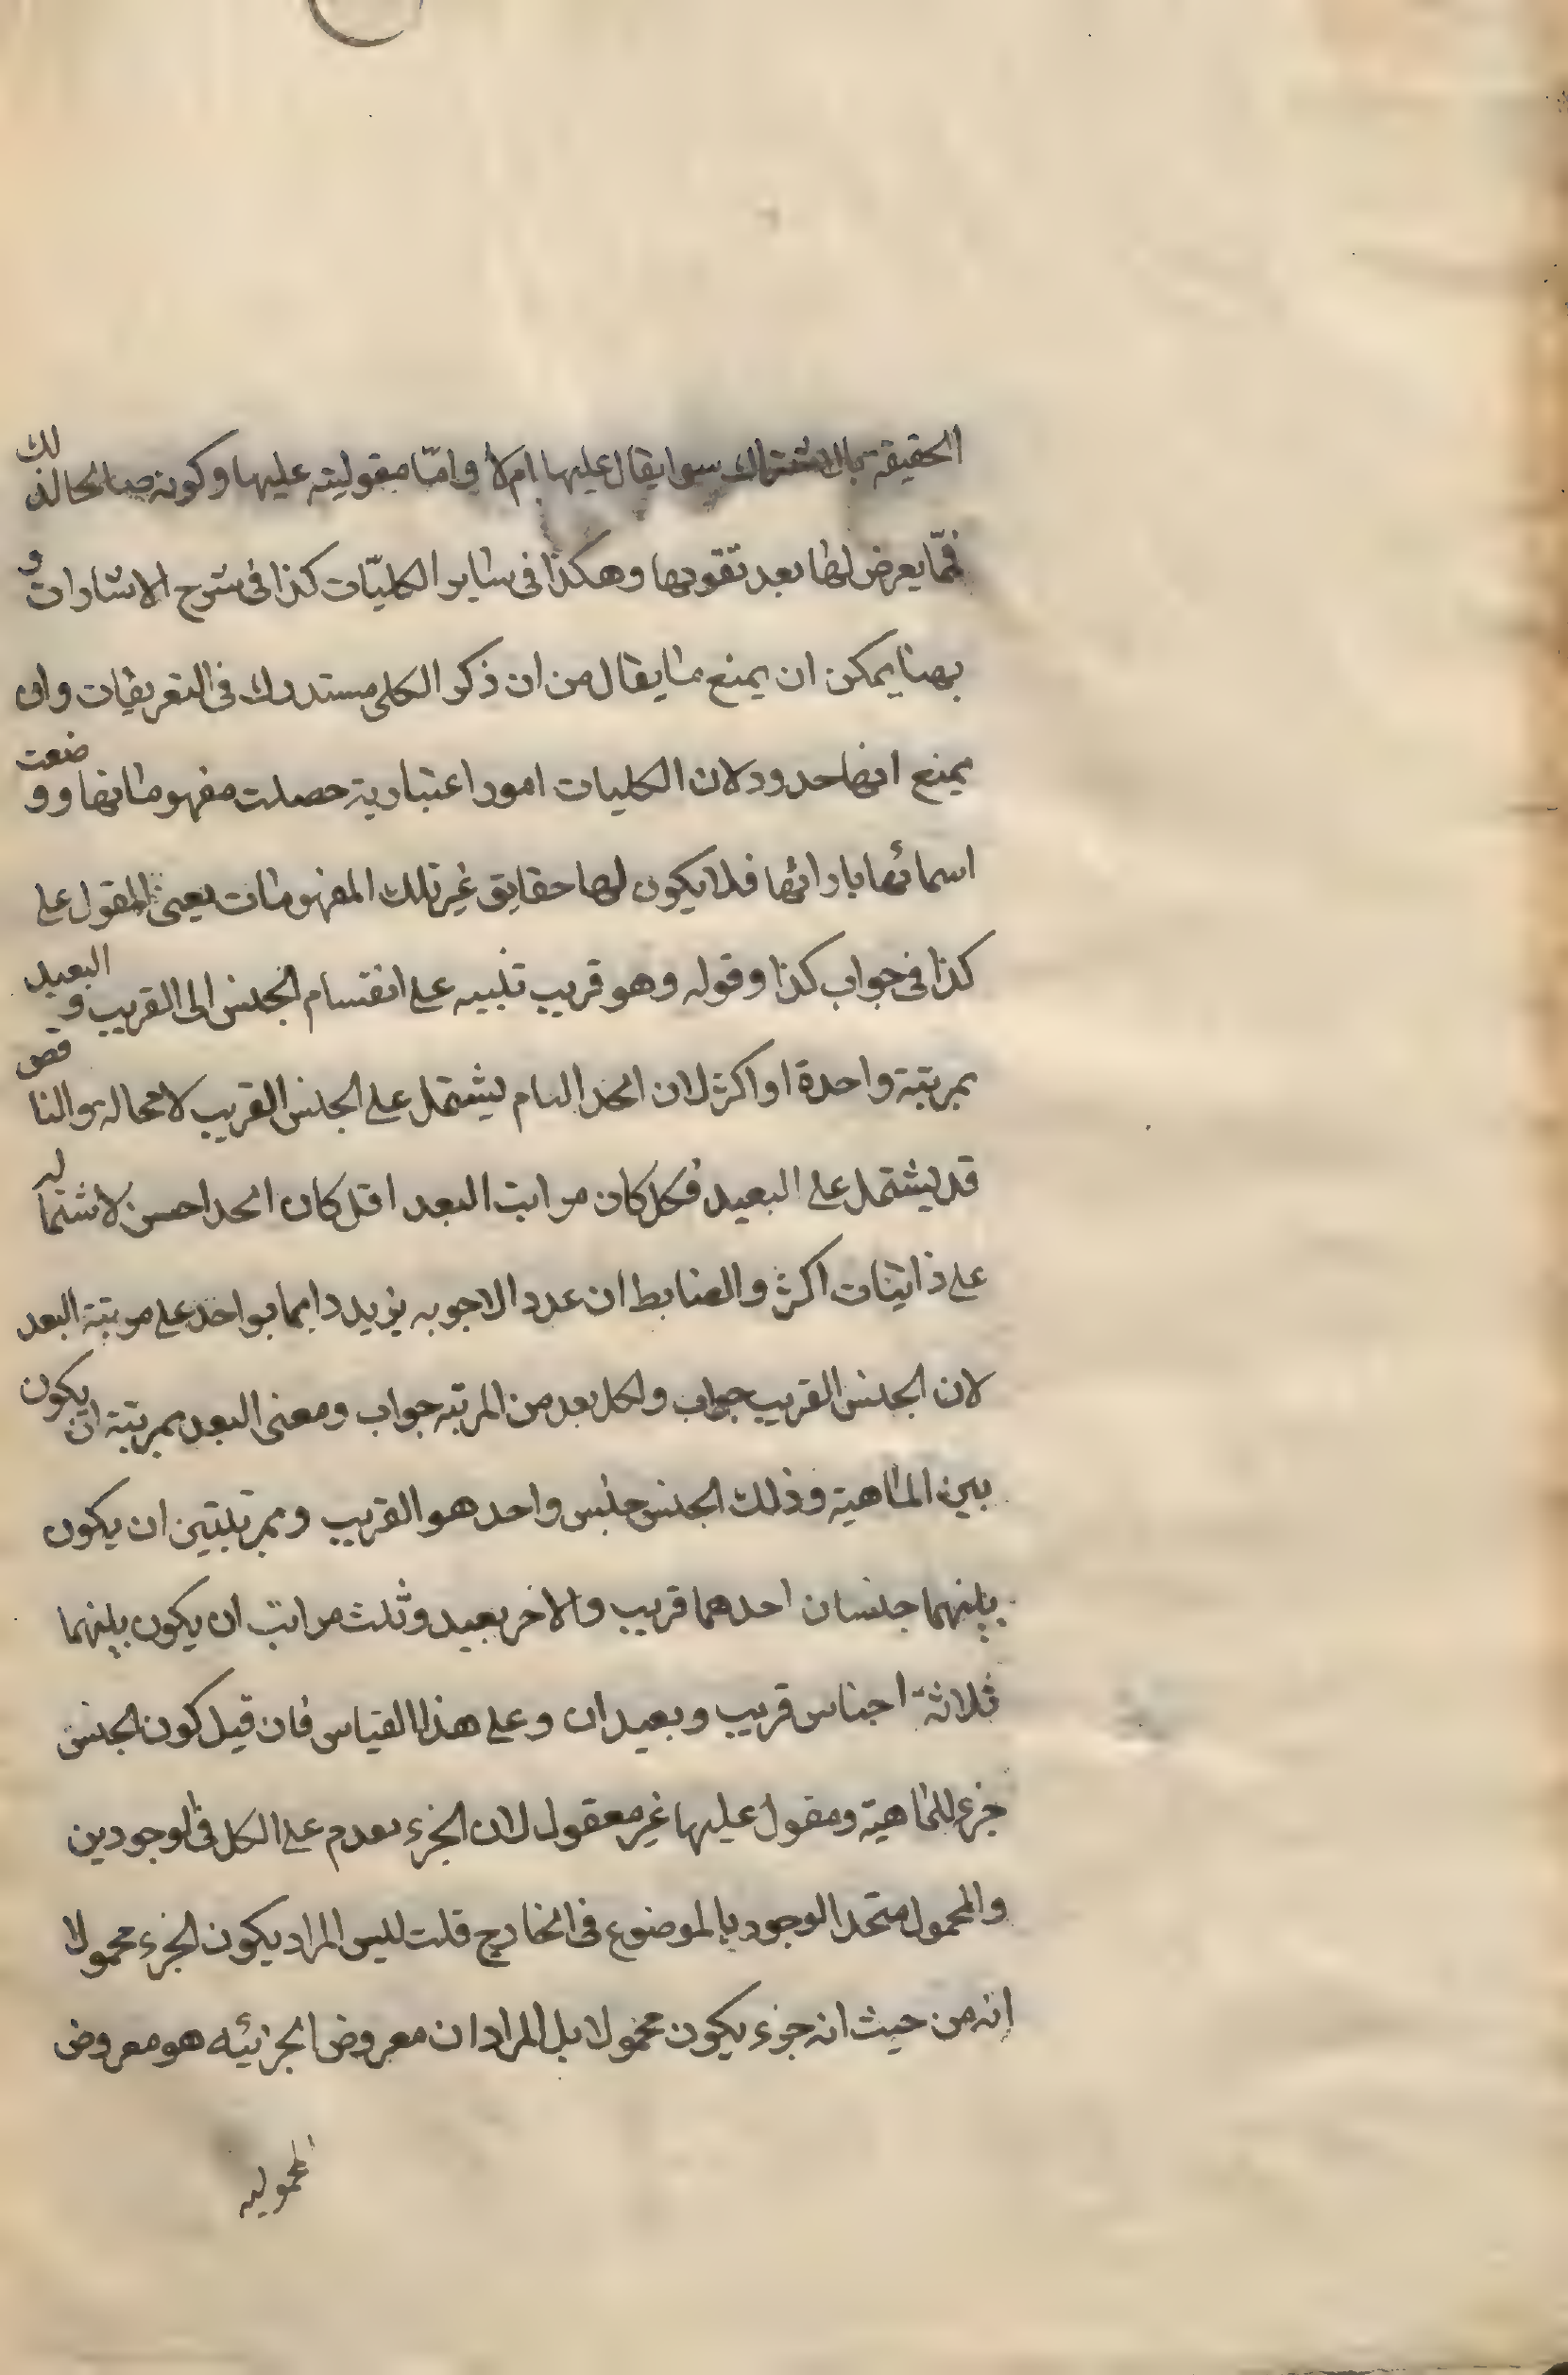 الحقيقة بالاشتراك سوا يقال عليها ام لا و امّا مقوليته عليها و كونه صالحا لذلك
فمّا يعرض لها بعد تقومها وهكذا فى ساير الكليّات كذا فى شرح الاشارات و
بهذا يمكن ان يمنع ما يقال من ان ذكر الكلى مستدرك فى التعريفات وان
يمنع انها حدود لان الكليات امور اعتبارية حصلت مفهوماتها ووضعت
اسمائها بازائها فلا يكون لها حقايق غير تلك المفهومات يعنى المقول على
كذا فى جواب كذا وقوله وهو قريب تنبيه على انقسام الجنس الى القريب و البعيد
بمرتبة واحدة او اكثر لان الحد التام يشتمل على الجنس القريب لا محالة والناقص
قد يشتمل على البعيد فكل كان مراتب البعد اقل كان الحد احسن لاشتماله
على ذاتيات اكثر والضابط ان عدد الاجوبه يزيد دايما بواحد على مرتبة البعد
لان الجنس القريب جواب ولكل بعد من المرتبه جواب ومعنى البعد بمرتبة ان يكون
بين الماهية وذلك الجنس جنس واحد هو القريب وبمرتبتين ان يكون
بينهما جنسان احدهما قريب والاخر بعيد وثلث مراتب ان يكون بينهما
ثلاثة اجناس قريب وبعيدان وعلى هذا القياس فان قيل كون الجنس
جزء للماهية ومقول عليها غير معقول لان الجزء يعدم على الكل فى الوجودين
والمحمول متحد الوجود بالموضوع فى الخارج قلت ليس المراد بكون الجزء محمولا
انه من حيث انه جزء يكون محمولا بل المراد ان معروض الجزئيه هو معروض
المحموليه